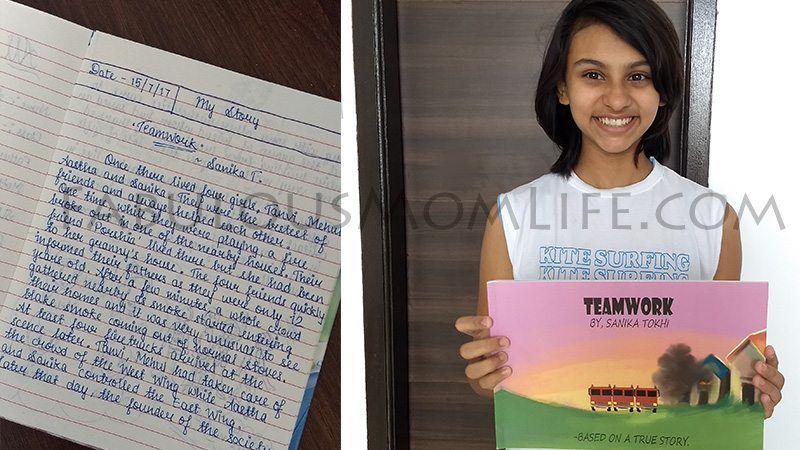 Date - 15/7/17
My Story
Teamwork
~ Sanika T.
Once there lived four girls, Tanvi, Menu
Aastha and Sanika. They were the bestest of
friends and always helped each other.
One time, while they were playing, a fire
broke out in one of the nearby houses. Their
friend 'Pourria' lived there but she had been
to her granny's house. The four friends quickly
informed their fathers as they were only 12
years old. After a few minutes, a whole crowd
gathered nearby as smoke started entering
their homes and it was very unusual to see
blake smoke coming out of normal stoves.
At least four firetrucks arrived at the
scence later. Tanvi, Menu had taken care of
the crowd of the West Wing while Aastha
and Sanika controlled the East Wing.
later that day, the founder of the society
FABULOUSMOMLIFE.COM
KITE SURFING
KITE SURFING
TEAMWORK
BY, SANIKA TOKHI
-BASED ON A TRUE STORY.